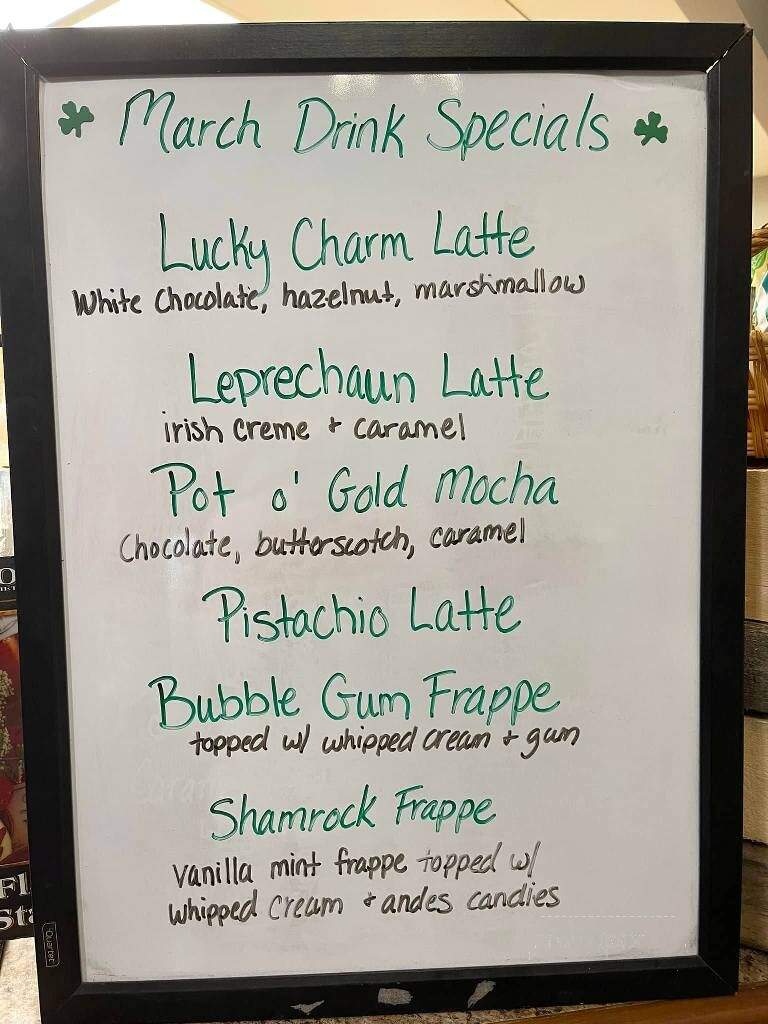 March Drink Specials
Lucky Charm Latte
White Chocolate, hazelnut, marshmallow
Leprechaun Latte
irish creme + caramel
Pot o' Gold Mocha
Chocolate, butterscotch, caramel
Pistachio Latte
Bubble Gum Frappe
topped w/ whipped cream + gum
Shamrock Frappe
vanilla mint frappe topped w/
whipped cream + andes candies
Quartet